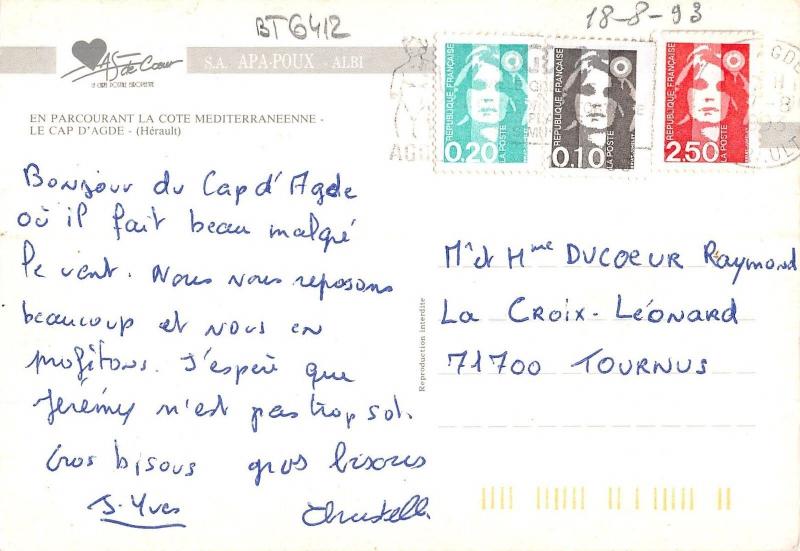 BT6412
18-8-93
AS de Cœur
LA CARTE POSTALE EUROPEENNE
S.A. APA-POUX - ALBI
EN PARCOURANT LA COTE MEDITERRANEENNE -
LE CAP D'AGDE - (Hérault)
REPUBLIQUE FRANÇAISE
0,20 LA POSTE
REPUBLIQUE FRANÇAISE
0,10 LA POSTE
REPUBLIQUE FRANÇAISE
2,50 LA POSTE
Bonjour du Cap d'Agde
où il fait beau malgré
le vent. Nous nous reposons
beaucoup et nous en
profitons. J'espère que
Jérémy n'est pas trop sol.
Gros bisous gros bisous
J-Yves Christelle
Reproduction interdite
Mr et Mme DUCOEUR Raymond
LA CROIX-LÉONARD
71700 TOURNUS